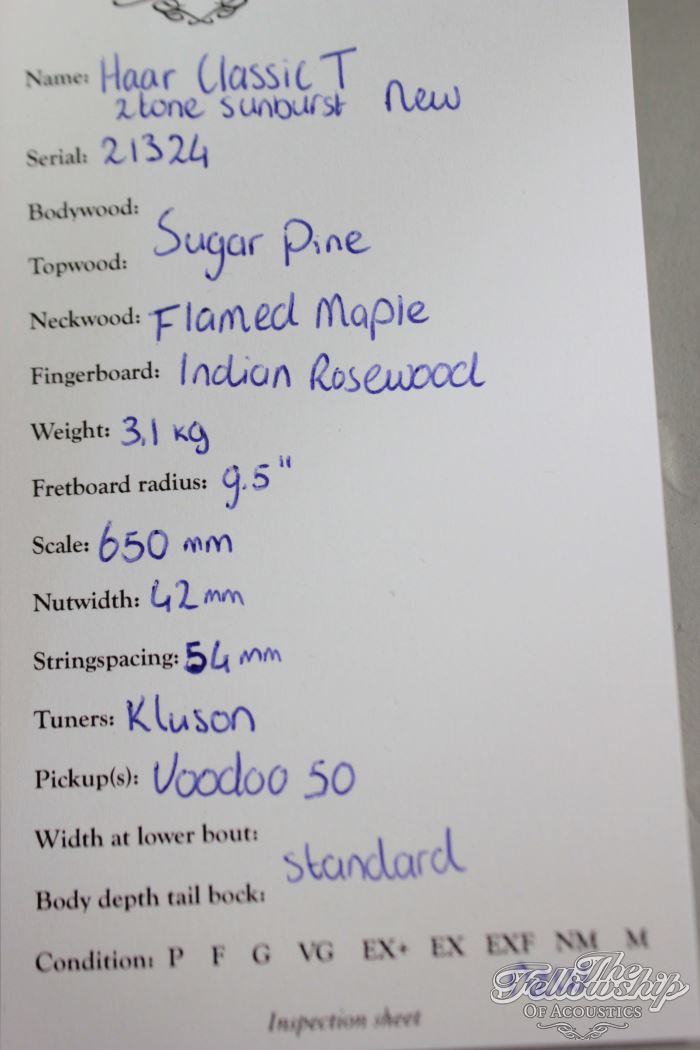 Name: Haar Classic T
2 tone sunburst New
Serial: 21324
Bodywood:
Sugar Pine
Topwood:
Neckwood: Flamed Maple
Fingerboard: Indian Rosewood
Weight: 3,1 kg
Fretboard radius: 9.5"
Scale: 650 mm
Nutwidth: 42 mm
Stringspacing: 54 mm
Tuners: Kluson
Pickup(s): Voodoo 50
Width at lower bout:
Standard
Body depth tail bock:
Condition: P F G VG EX+ EX EXF NM M
The
Fellowship
OF ACOUSTICS
Inspection sheet